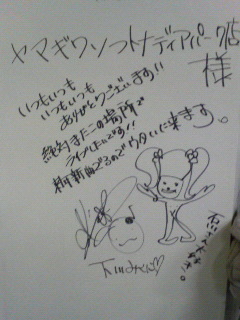 ヤマギワソフトナディアパーク店
様
いつもいつも
いつもいつも
ありがとうございます!!
絶対またこの場所で
ライブしたいです!!
新曲でるのでウタいに来ます。
下川みくに♡